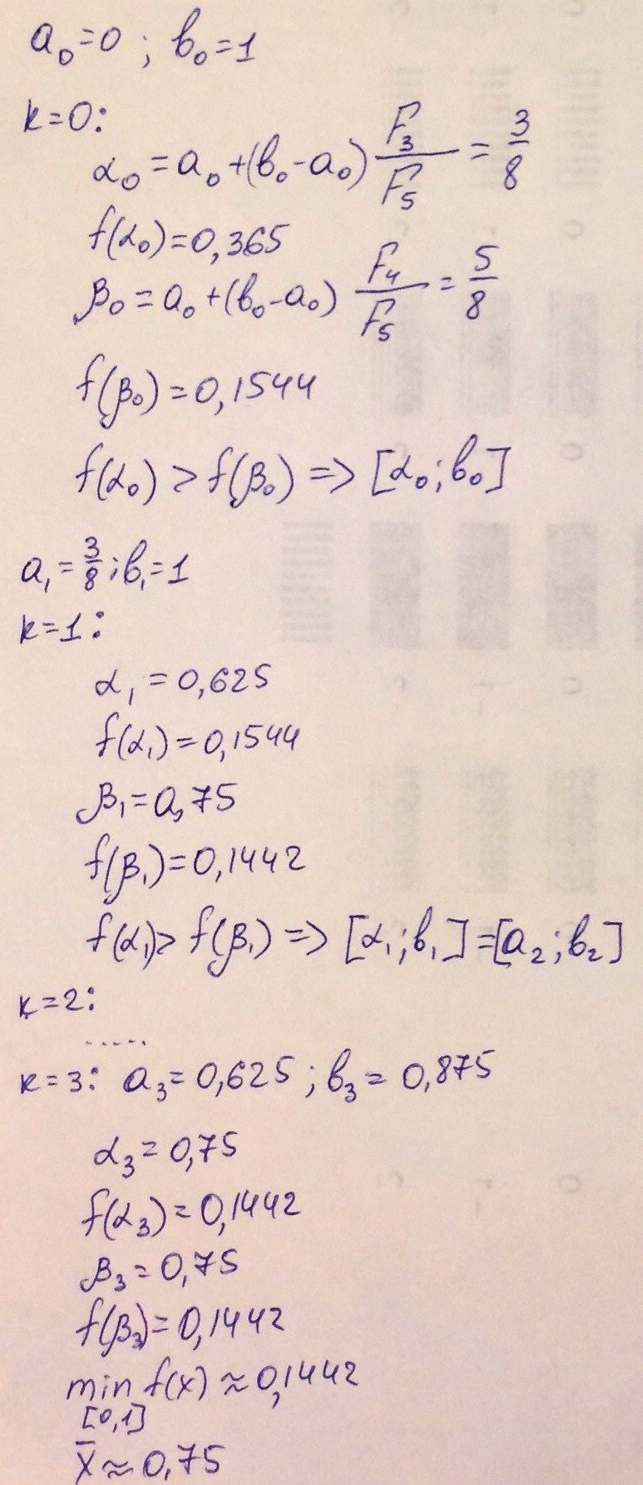 a₀=0 ; b₀=1
k=0:
α₀ = a₀+(b₀-a₀) F₃/F₅ = 3/8
f(α₀)=0,365
β₀ = a₀+(b₀-a₀) F₄/F₅ = 5/8
f(β₀)=0,1544
f(α₀) > f(β₀) => [α₀;b₀]
a₁ = 3/8; b₁=1
k=1:
α₁ = 0,625
f(α₁)=0,1544
β₁=0,75
f(β₁)=0,1442
f(α₁)> f(β₁) => [α₁;b₁]=[a₂;b₂]
k=2:
.....
k=3: a₃=0,625 ; b₃= 0,875
α₃=0,75
f(α₃)=0,1442
β₃=0,75
f(β₃)=0,1442
min f(x) ≈ 0,1442
[0,1]
x̄≈0,75